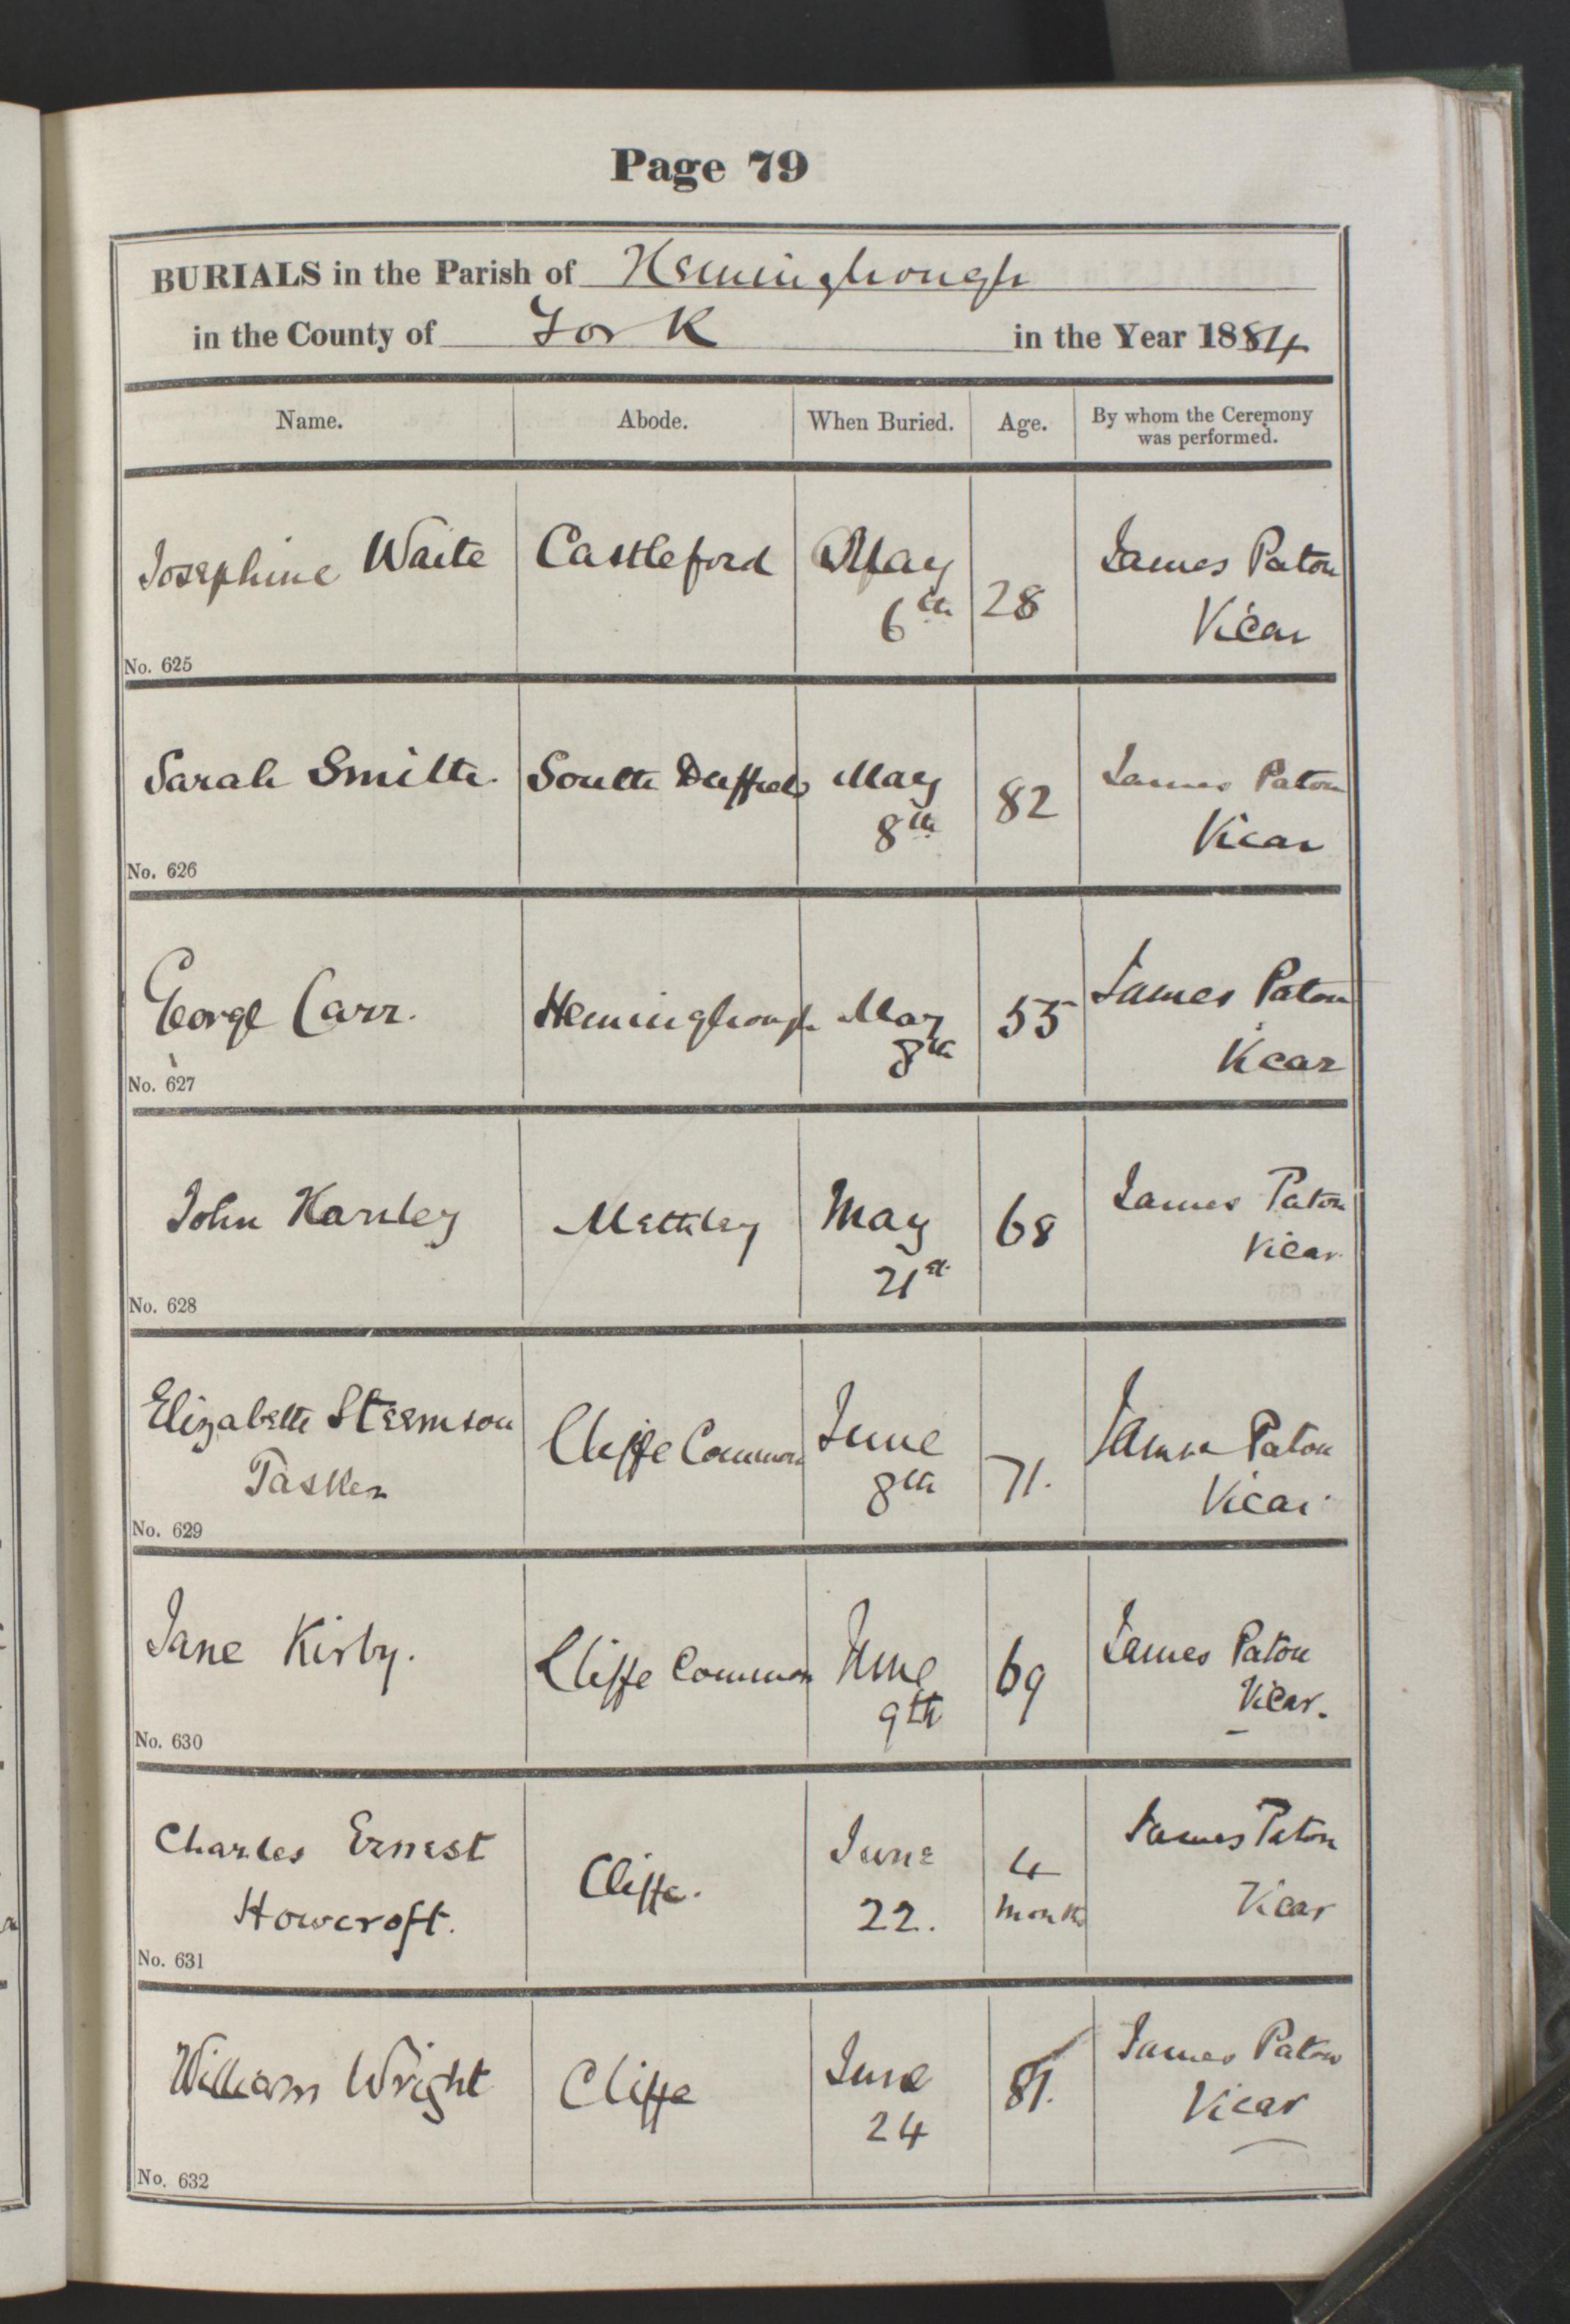 Page 79
BURIALS in the Parish of Hemingbrough
in the County of York in the Year 1884
Name. Abode. When Buried. Age. By whom the Ceremony was performed.
Josephine Waite Castleford May 28 James Paton
6th Vicar
No. 625
Sarah Smith. South Duffield May 82 James Paton
8th Vicar
No. 626
George Carr. Hemingbrough May 55 James Paton
8th Vicar
No. 627
John Hanley Methley May 68 James Paton
21st Vicar
No. 628
Elizabeth Steemson Cliffe Common June 71. James Paton
Tasker 8th Vicar
No. 629
Jane Kirby. Cliffe Common June 69 James Paton
9th Vicar.
No. 630
Charles Ernest Cliffe. June 4 James Paton
Howcroft. 22. months Vicar
No. 631
William Wright Cliffe June 81. James Paton
24 Vicar
No. 632